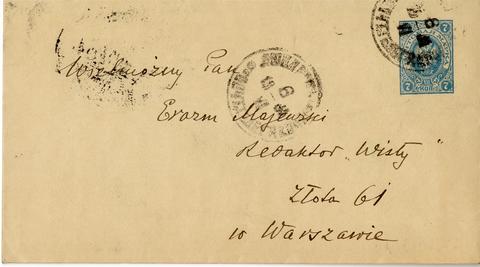 Wielmożny Pan
Erazm Majewski
Redaktor „Wisły"
Złota 61
w Warszawie
7 7
7 7